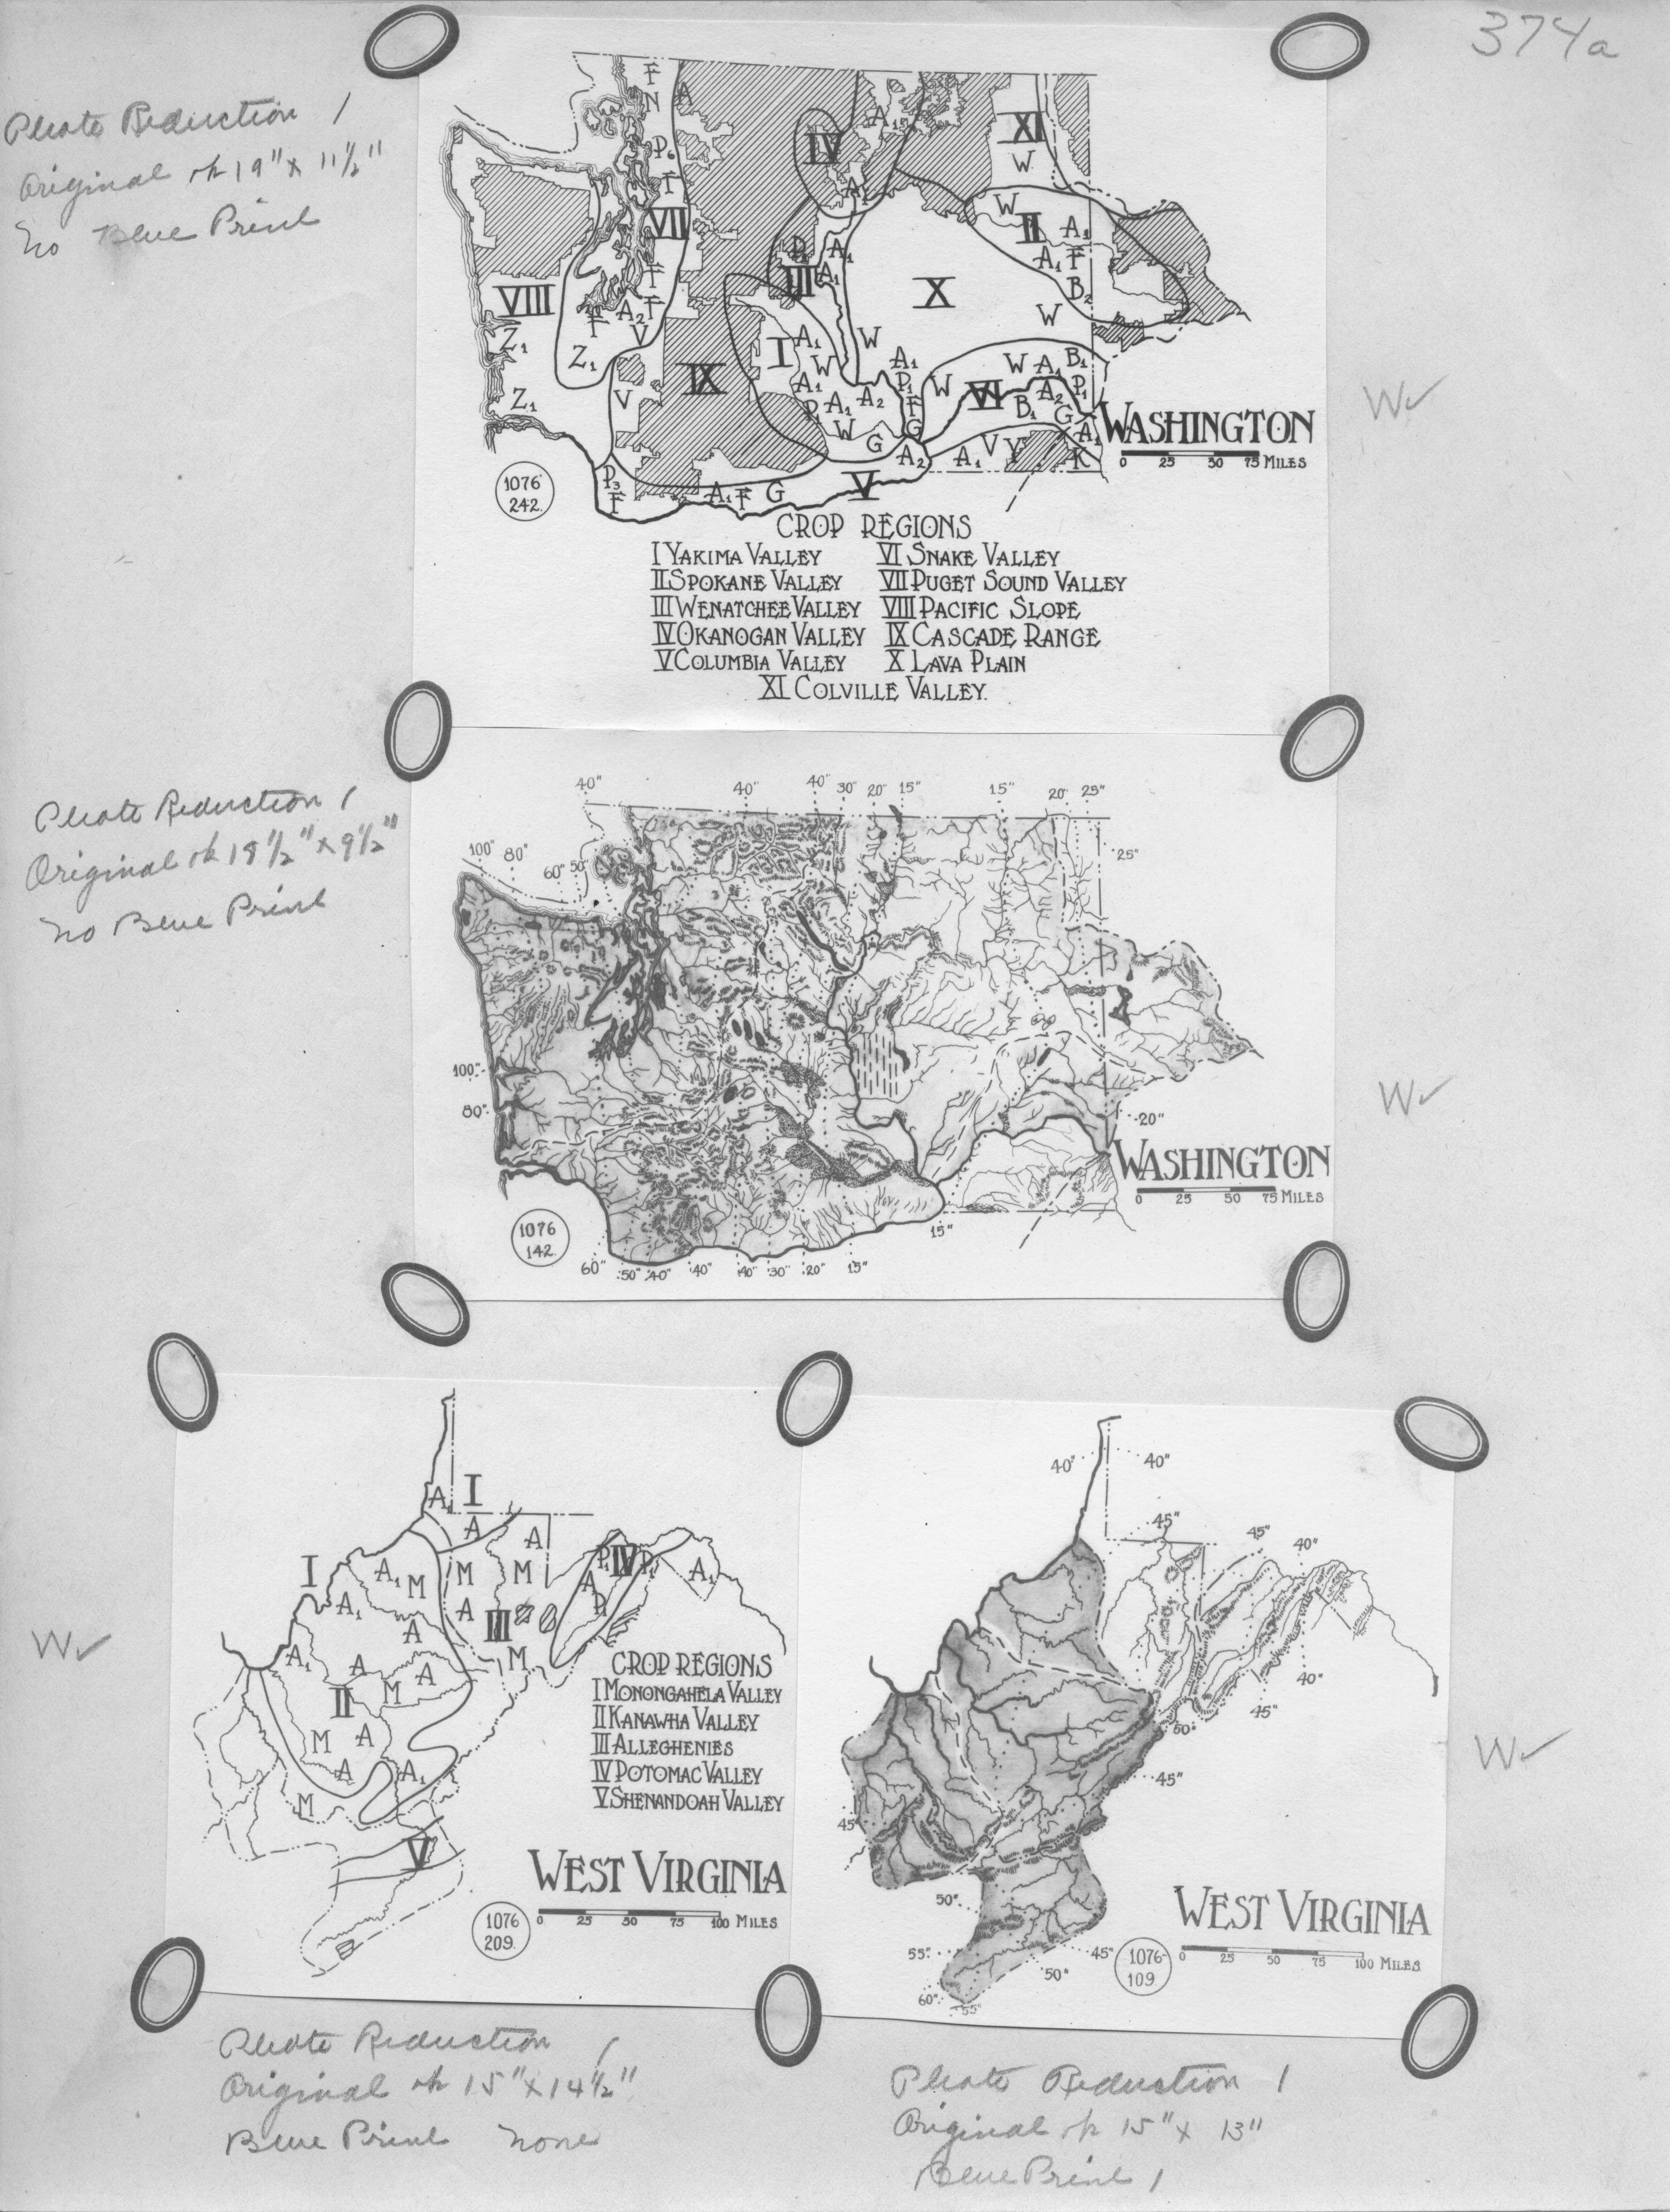 374a
Photo Reduction 1
Original ok 19" x 11½"
No Blue Print
F
N
A
P6
F
VII
IV
A1
A1
XI
W
W
II
A1
A1 F
B2
W
VIII
Z1
Z1
F
F
F
A2
V
Z1
V
IX
P1 A1
III A1
X
I A1
W
A1
P1 A1 A2
W
G
W
A1
P1
F
G
A2
W
W A1 B1
VI A2 P1
B1 G
A1
A1 V Y K
P3
F
A1 F G
V
WASHINGTON
0 25 50 75 MILES
1076
242.
CROP REGIONS
I YAKIMA VALLEY VI SNAKE VALLEY
II SPOKANE VALLEY VII PUGET SOUND VALLEY
III WENATCHEE VALLEY VIII PACIFIC SLOPE
IV OKANOGAN VALLEY IX CASCADE RANGE
V COLUMBIA VALLEY X LAVA PLAIN
XI COLVILLE VALLEY.
W✓
Photo Reduction 1
Original ok 18½" x 9½"
No Blue Print
40" 40" 40" 30" 20" 15" 15" 20" 25"
100" 80" 60" 50"
25"
100"
80"
20"
WASHINGTON
0 25 50 75 MILES
1076
142.
15"
60" 50" 40" 40" 40" 30" 20" 15"
W✓
W✓
I
A1
A
A
I
A1 M M M
A1 A III
A
A1 A A M
II M
M A
A A1
M
P1 IV P1
A
P1
A1
V
CROP REGIONS
I MONONGAHELA VALLEY
II KANAWHA VALLEY
III ALLEGHENIES
IV POTOMAC VALLEY
V SHENANDOAH VALLEY
WEST VIRGINIA
0 25 50 75 100 MILES
1076
209.
40" 40"
45" 45" 40"
40"
45"
50"
45"
45"
50"
55" 45"
50"
60" 55"
WEST VIRGINIA
0 25 50 75 100 MILES
1076
109
W✓
Photo Reduction 1
Original ok 15" x 14½"
Blue Print None
Photo Reduction 1
Original ok 15" x 13"
Blue Print 1